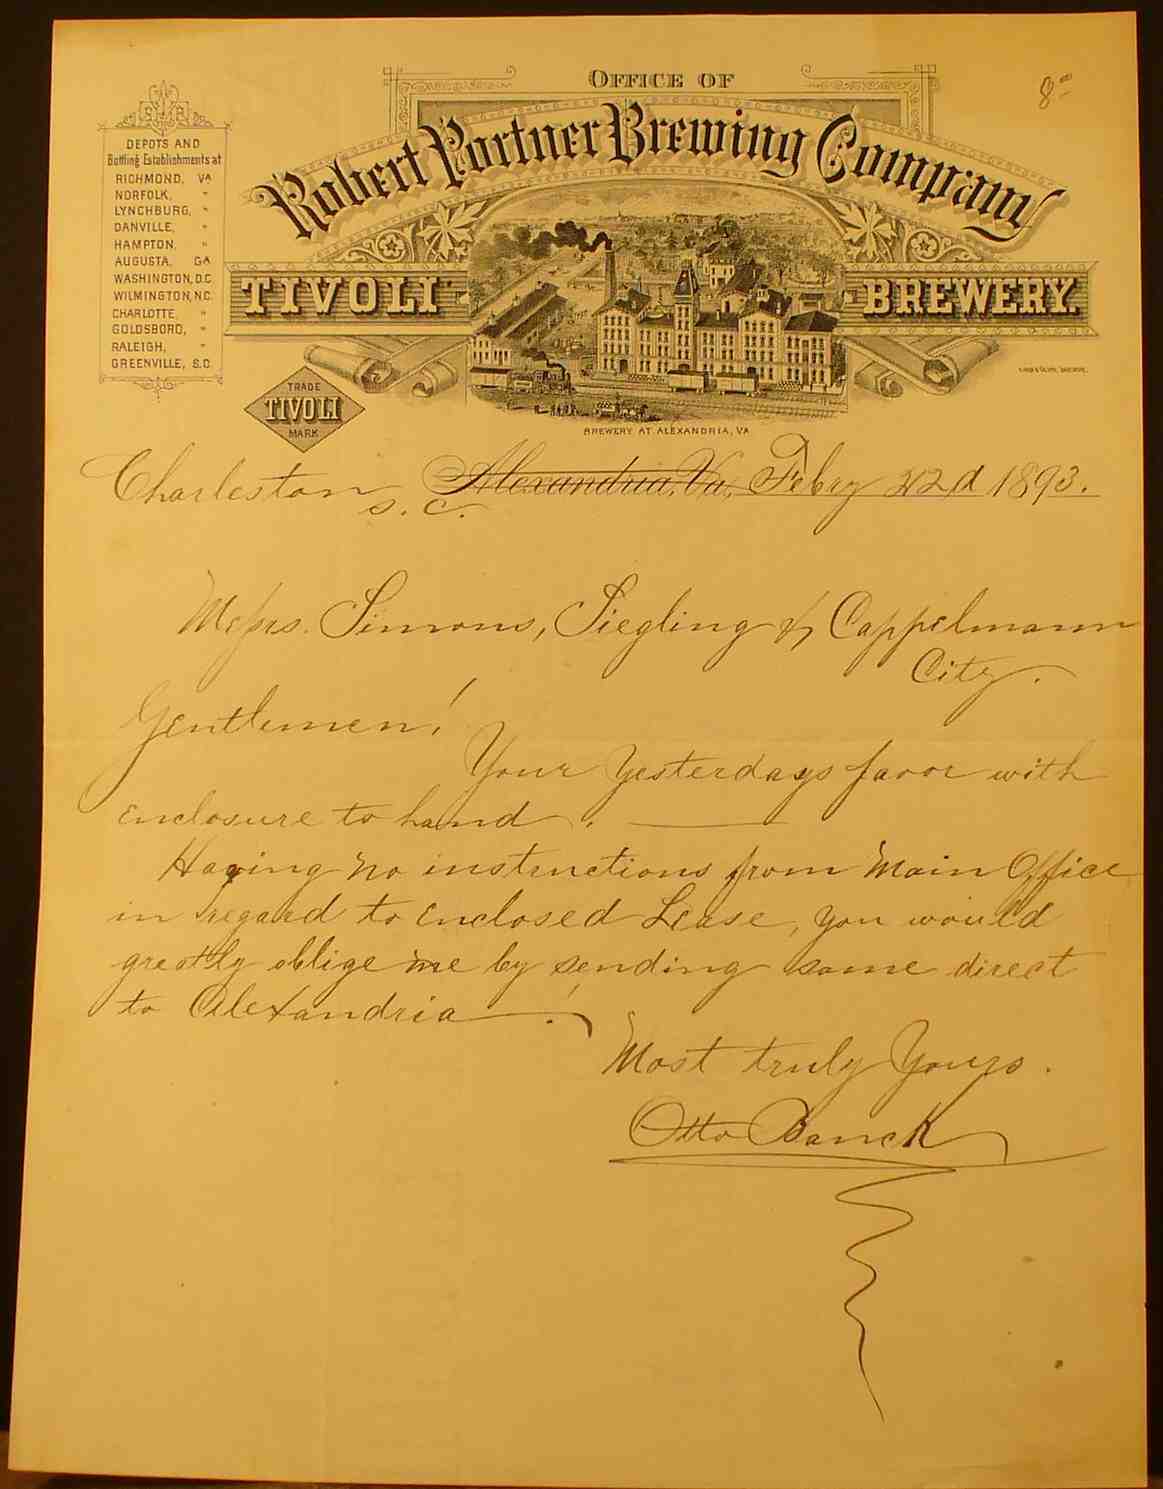 8=
OFFICE OF
Robert Portner Brewing Company
TIVOLI BREWERY.
DEPOTS AND
Bottling Establishments at
RICHMOND, VA
NORFOLK, "
LYNCHBURG, "
DANVILLE, "
HAMPTON, "
AUGUSTA, GA
WASHINGTON, D.C
WILMINGTON, N.C.
CHARLOTTE, "
GOLDSBORO, "
RALEIGH, "
GREENVILLE, S.C.
TRADE
TIVOLI
MARK
BREWERY AT ALEXANDRIA, VA
Charleston S.C. Alexandria, Va., Febry 22d 1893.
Messrs. Simons, Siegling & Cappelmann
City.
Gentlemen!
Your Yesterdays favor with
enclosure to hand.
Having no instructions from Main Office
in regard to enclosed Lease, you would
greatly oblige me by sending same direct
to Alexandria!
Most truly Yours.
Otto Banck